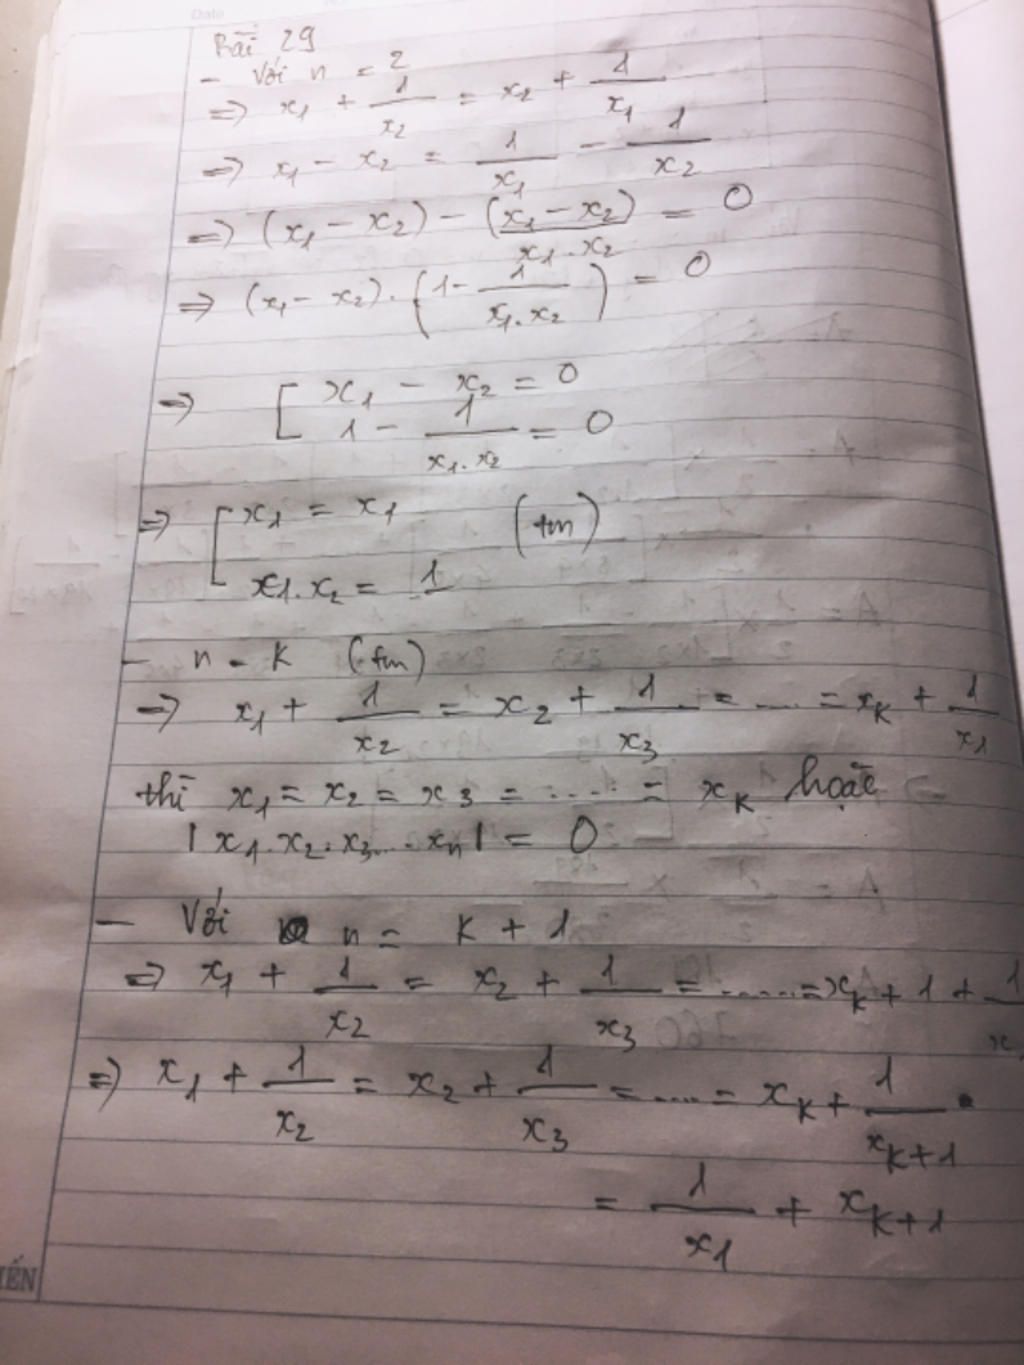 Date
Bài 29
- Với n = 2
=> x₁ + 1/x₂ = x₂ + 1/x₁
=> x₁ - x₂ = 1/x₁ - 1/x₂
=> (x₁ - x₂) - (x₁ - x₂)/(x₁.x₂) = 0
=> (x₁ - x₂).(1 - 1/(x₁.x₂)) = 0
=> [ x₁ - x₂ = 0
1 - 1/(x₁.x₂) = 0
=> [ x₁ = x₁ (tm)
x₁.x₂ = 1
- n = K (tm)
=> x₁ + 1/x₂ = x₂ + 1/x₃ = .... = x_K + 1/x₁
thì x₁ = x₂ = x₃ = ..... = x_K hoặc
|x₁.x₂.x₃...x_n| = 0
- Với n = K + 1
=> x₁ + 1/x₂ = x₂ + 1/x₃ = ...... = x_K + 1 + 1/x
=> x₁ + 1/x₂ = x₂ + 1/x₃ = .... = x_K + 1/x_{K+1}
= 1/x₁ + x_{K+1}
IẾN